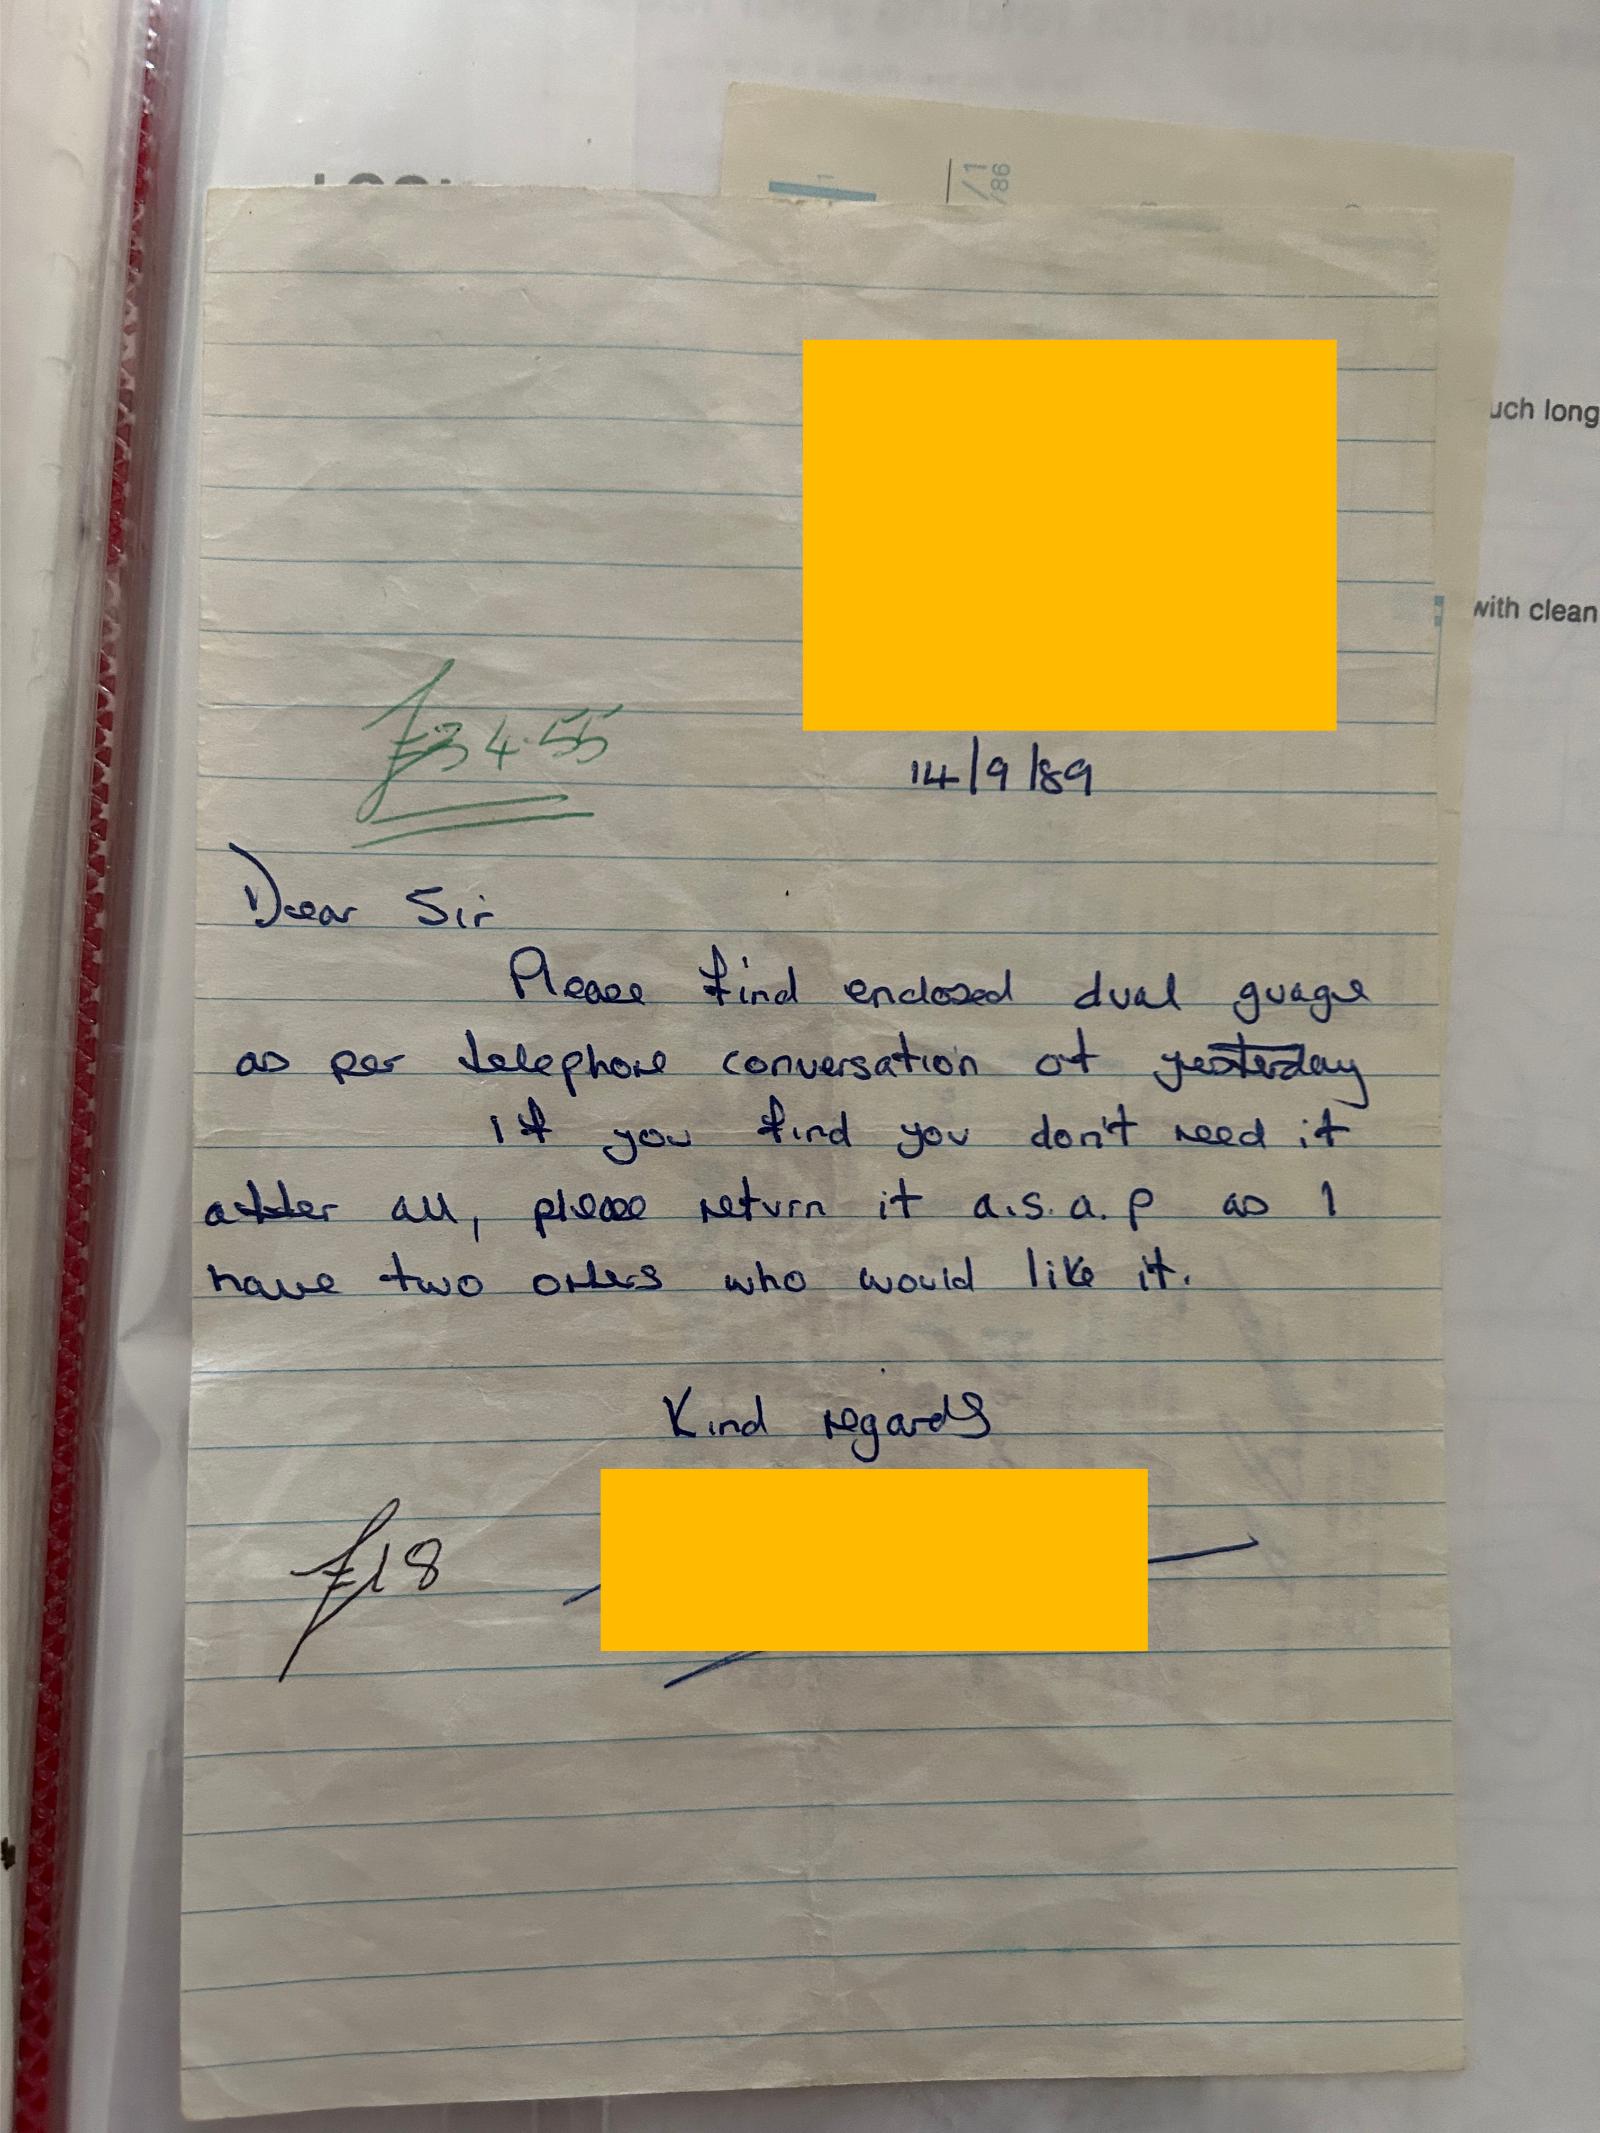 /1
/86
uch long
with clean
£34.55
14/9/89
Dear Sir
Please find enclosed dual guage
as per telephone conversation of yesterday
If you find you don't need it
after all, please return it a.s.a.p as I
have two others who would like it.
Kind regards
£18